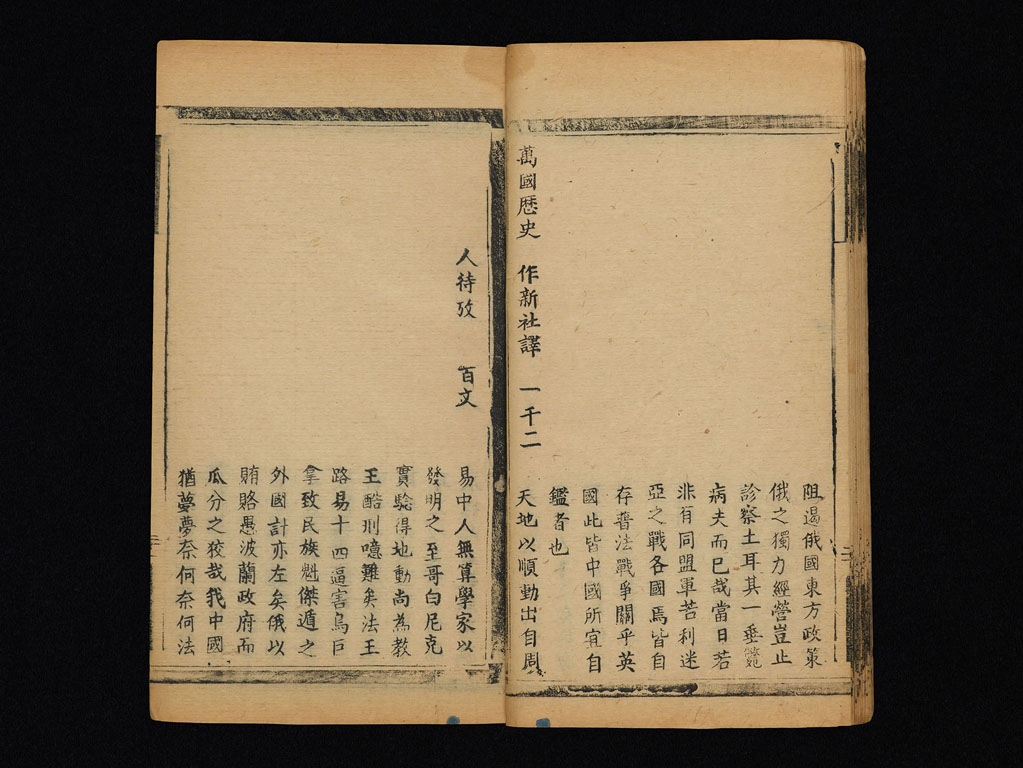 阻遏俄國東方政策
俄之獨力經營豈止
診察土耳其一垂斃
病夫而已哉當日若
非有同盟軍苦利迷
亞之戰各國焉皆自
存普法戰爭關乎英
國此皆中國所宜自
鑑者也
萬國歷史 作新社譯 一千二
天地以順動出自周
易中人無算學家以
人待攷 百文
發明之至哥白尼克
實驗得地動尚為教
王酷刑噫難矣法王
路易十四逼害烏巨
拿致民族魁傑遁之
外國計亦左矣俄以
賄賂愚波蘭政府而
瓜分之狡哉我中國
猶夢夢奈何奈何法